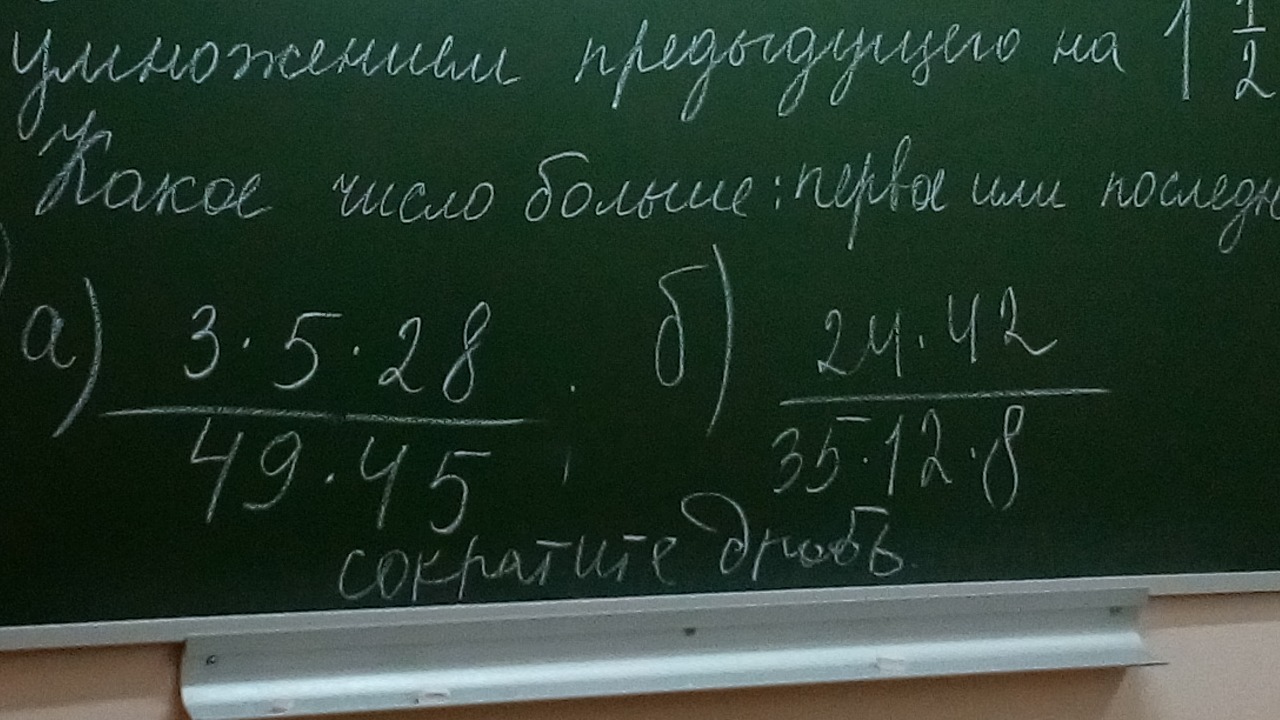 умножением предыдущего на 1 1/2
Какое число больше: первое или последн
а) 3·5·28 / 49·45 б) 24·42 / 35·12·8
сократите дробь.